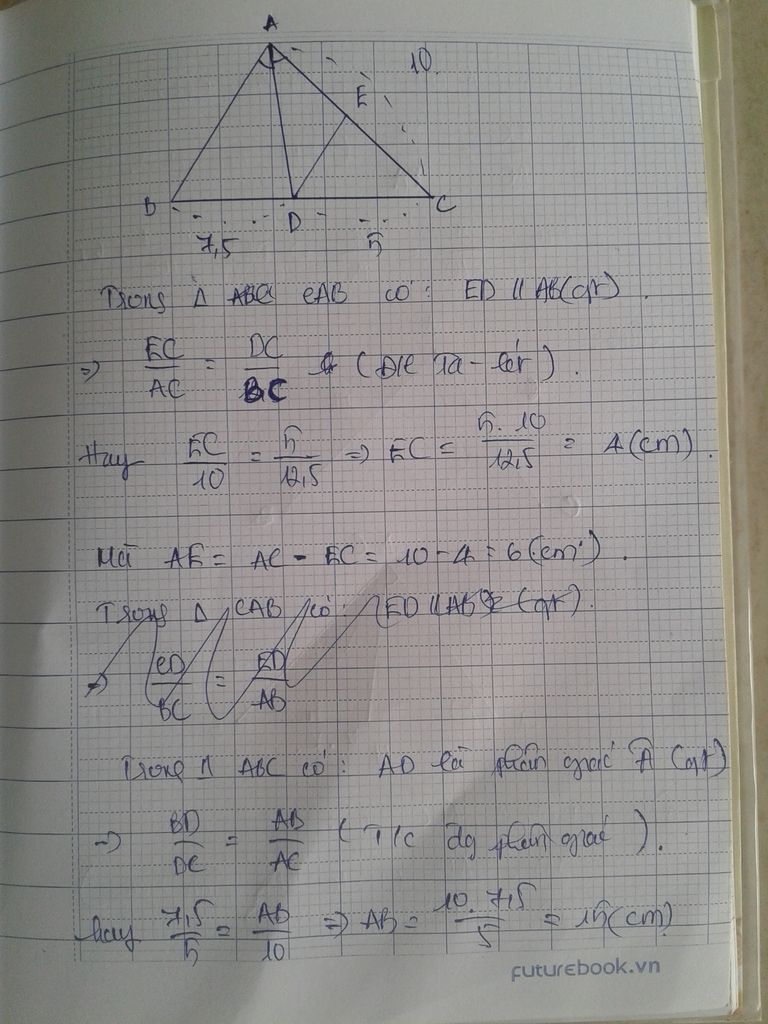 A
10
E
B
D
C
7,5
5
Trong Δ CAB có: ED // AB (gt).
=> EC/AC = DC/BC (Đlí Ta-lét).
Hay EC/10 = 5/12,5 => EC = 5.10/12,5 = 4 (cm).
Mà AE = AC - EC = 10 - 4 = 6 (cm).
Trong Δ CAB có: ED // AB (gt).
=> CD/BC = ED/AB
Trong Δ ABC có: AD là phân giác Â (gt)
=> BD/DC = AB/AC (T/c đg phân giác).
hay 7,5/5 = AB/10 => AB = 10.7,5/5 = 15 (cm)
futurebook.vn